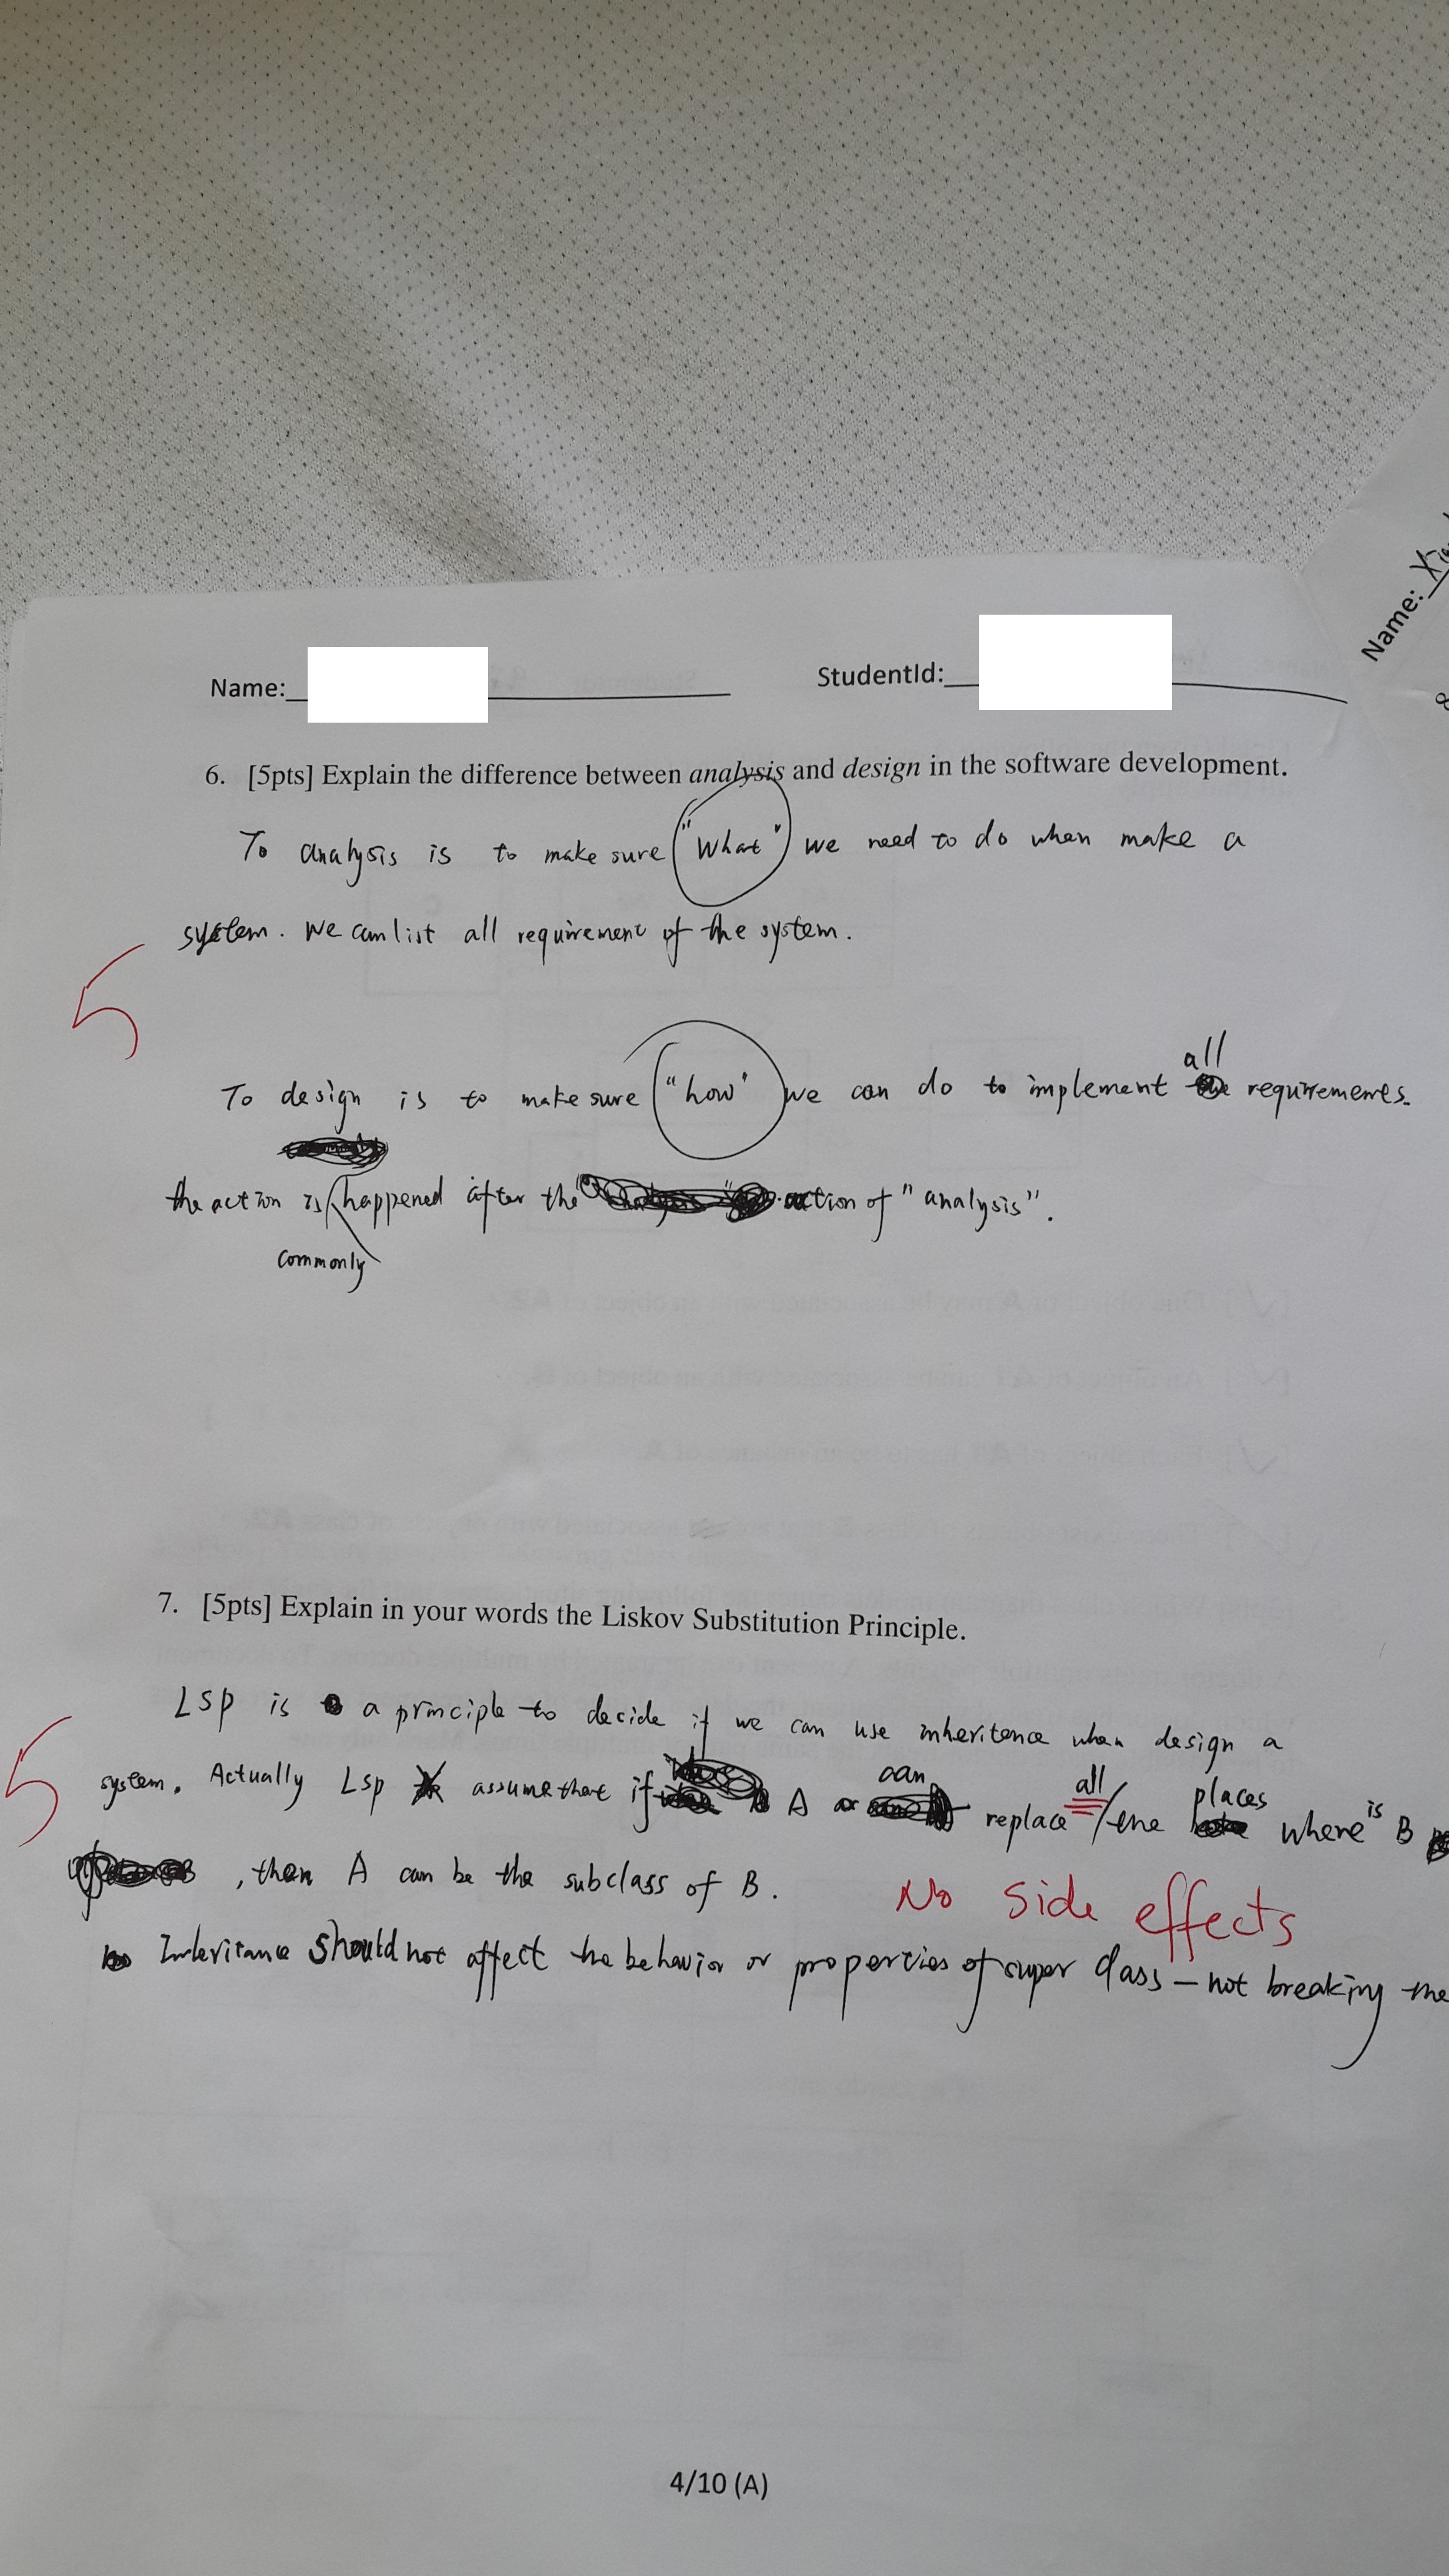 Name:
StudentId:
Name: Xi
6. [5pts] Explain the difference between analysis and design in the software development.
To analysis is to make sure "What" we need to do when make a
system. We can list all requirement of the system.
5
all
To design is to make sure "how" we can do to implement requirements.
the action is happened after the action of "analysis".
commonly
7. [5pts] Explain in your words the Liskov Substitution Principle.
LSP is a principle to decide if we can use inheritence when design a
5
system. Actually LSP assume that if A can replace all / the places where is B
, then A can be the subclass of B.
No side effects
Inheritance should not affect the behavior or properties of super class — not breaking the
4/10 (A)